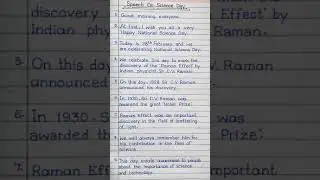 Speech On Science Day
1. Good morning everyone.
2. At first I wish you all a very
Happy National Science Day.
3. Today is 28th February and we
are celebrating National Science Day.
4. We celebrate this day to mark the
discovery of the 'Raman Effect' by
Indian physicist Sir C.V. Raman.
5. On this day, 1928 Sir C.V. Raman
announced his discovery.
6. In 1930, Sir C.V. Raman was
awarded the great Nobel Prize.
7. Raman Effect was an important
discovery in the field of scattering
of light.
8. We will always remember him for
his contribution in the field of
science.
9. This day created awareness to people
about the importance of science
and technology.
discovery
Indian
3. On this day
announced
5. In 1930, S
was awarded the
7. Raman Ef
Effect' by
Raman.
Raman
was
Prize.
important